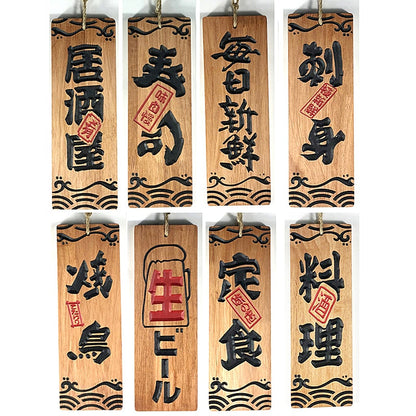 居酒屋
寿司
毎日新鮮
刺身
焼鳥
生ビール
定食
料理
酒